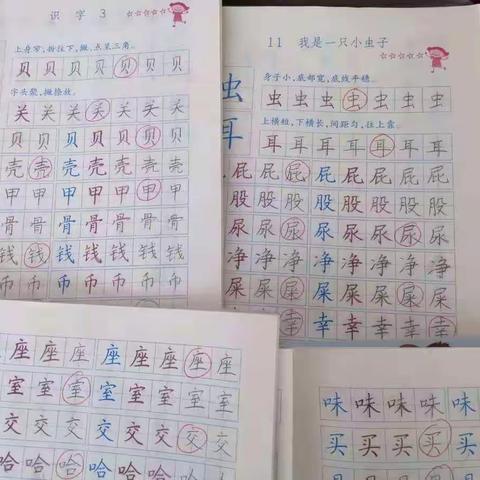 识字3
☆☆☆☆☆
上身窄,扮往下,撇、点呈三角。
贝贝贝贝贝贝
字头聚,撇捺放。
关关关关关关
贝贝贝贝贝贝
壳壳壳壳壳壳壳
甲甲甲甲甲甲甲
骨骨骨骨骨骨骨
钱钱钱钱钱钱钱
币币币币币币币
11 我是一只小虫子
☆☆☆☆☆
身子小,底部宽,底线平稳。
虫
虫虫虫虫虫虫
上横短,下横长,间距匀,往上靠。
耳
耳耳耳耳耳耳
屁屁屁屁屁屁屁
股股股股股股股
尿尿尿尿尿尿尿
净净净净净净净
屎屎屎屎屎屎屎
幸幸幸幸幸幸幸
座座座座座座座
室室室室室室室
交交交交交交交
哈哈哈哈哈哈哈
味味味味味
买买买买买